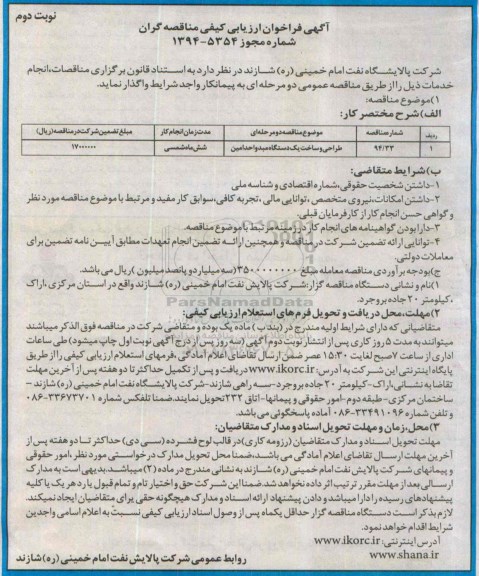 نوبت دوم
آگهی فراخوان ارزیابی کیفی مناقصه گران
شماره مجوز ۵۳۵۴-۱۳۹۴
شرکت پالایشگاه نفت امام خمینی (ره) شازند در نظر دارد به استناد قانون برگزاری مناقصات، انجام
خدمات ذیل را از طریق مناقصه عمومی دو مرحله ای به پیمانکار واجد شرایط واگذار نماید.
۱) موضوع مناقصه:
الف) شرح مختصر کار:
ردیف شماره مناقصه موضوع مناقصه دو مرحله ای مدت زمان انجام کار مبلغ تضمین شرکت در مناقصه (ریال)
۱ ۹۴/۳۳ طراحی و ساخت یک دستگاه مبدل واحد آمین شش ماه شمسی ۱۷۰۰۰۰۰۰
ب) شرایط متقاضی:
۱-داشتن شخصیت حقوقی، شماره اقتصادی و شناسه ملی
۲-داشتن امکانات، نیروی متخصص، توانایی مالی، تجربه کافی، سوابق کار مفید و مرتبط با موضوع مناقصه مورد نظر
و گواهی حسن انجام کار از کارفرمایان قبلی.
۳-دارا بودن گواهینامه های انجام کار در زمینه مرتبط با موضوع مناقصه.
۴-توانایی ارائه تضمین شرکت در مناقصه و همچنین ارائه تضمین انجام تعهدات مطابق آیین نامه تضمین برای
معاملات دولتی.
ج) بودجه برآوردی مناقصه معامله مبلغ ۳۵۰۰۰۰۰۰۰۰ (سه میلیارد و پانصد میلیون) ریال می باشد.
۱) نام و نشانی دستگاه مناقصه گزار: شرکت پالایش نفت امام خمینی (ره) شازند واقع در استان مرکزی، اراک
، کیلومتر ۲۰ جاده بروجرد.
۲) مهلت، محل دریافت و تحویل فرم های استعلام ارزیابی کیفی:
متقاضیانی که دارای شرایط اولیه مندرج در (بند ب) ماده یک بوده و متقاضی شرکت در مناقصه فوق الذکر میباشند
میتوانند به مدت ۵ روز کاری پس از انتشار نوبت دوم آگهی (سه روز پس از درج آگهی نوبت اول چاپ میشود) طی ساعات
اداری از ساعت ۷ صبح لغایت ۱۵:۳۰ عصر ضمن ارسال تقاضای اعلام آمادگی، فرمهای استعلام ارزیابی کیفی را از طریق
پایگاه اینترنتی این شرکت به آدرس: www.ikorc.ir دریافت و پس از تکمیل حداکثر تا دو هفته پس از آخرین مهلت
تقاضا به نشانی، اراک-کیلومتر ۲۰ جاده بروجرد-سه راهی شازند-شرکت پالایشگاه نفت امام خمینی (ره) شازند-
ساختمان مرکزی-طبقه دوم-امور حقوقی و پیمانها-اتاق ۲۳۲ تحویل نمایند. ضمنا تلفکس شماره ۳۳۶۷۳۷۰۱-۰۸۶
و تلفن شماره ۳۳۴۹۱۰۹۶-۰۸۶ آماده پاسخگوئی می باشد.
۳) محل، زمان و مهلت تحویل اسناد و مدارک متقاضیان:
مهلت تحویل اسناد و مدارک متقاضیان (رزومه کاری) در قالب لوح فشرده (سی دی) حداکثر تا دو هفته پس از
آخرین مهلت ارسال تقاضای اعلام آمادگی می باشد، ضمنا محل تحویل مدارک درخواستی مورد نظر، امور حقوقی
و پیمانهای شرکت پالایش نفت امام خمینی (ره) شازند به نشانی مندرج در ماده (۲) میباشد. بدیهی است به مدارک
ارسالی بعد از مهلت مقرر ترتیب اثر داده نخواهد شد. ضمنا این شرکت حق و اختیار تام و تمام قبول یا رد هر یک یا کلیه
پیشنهادهای رسیده را دارا میباشد و دادن پیشنهاد ارائه اسناد و مدارک هیچگونه حقی برای متقاضیان ایجاد نمیکند.
لازم بذکر است دستگاه مناقصه گزار حداقل یکماه پس از وصول اسناد ارزیابی کیفی نسبت به اعلام اسامی واجدین
شرایط اقدام خواهد نمود.
آدرس اینترنتی: www.ikorc.ir
www.shana.ir
روابط عمومی شرکت پالایش نفت امام خمینی (ره) شازند
ParsNamadData